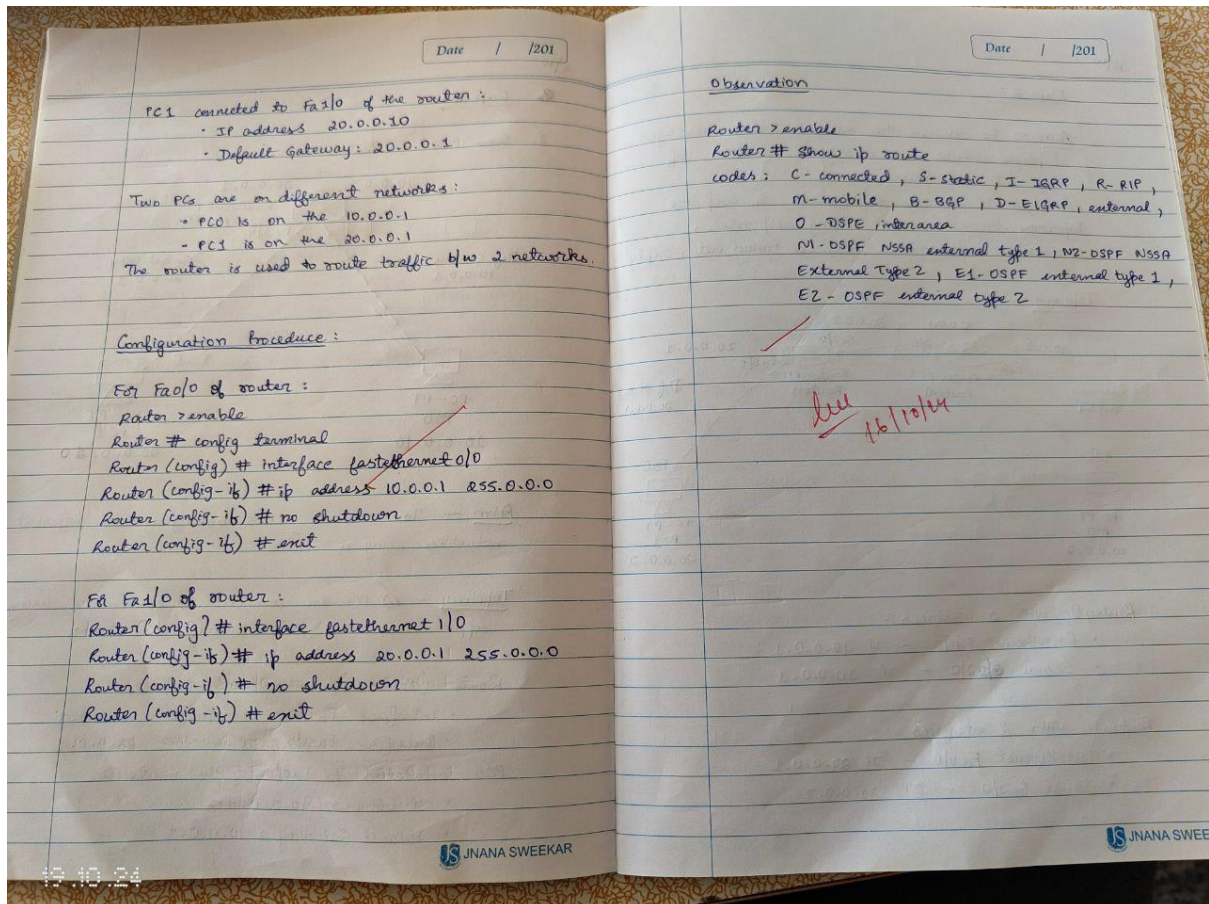 Date / /201
PC1 connected to Fa1/0 of the router :
• IP address 20.0.0.10
• Default Gateway : 20.0.0.1
Two PCs are on different networks :
• PC0 is on the 10.0.0.1
- PC1 is on the 20.0.0.1
The router is used to route traffic b/w 2 networks.
Configuration Proceduce :
For Fa0/0 of router :
Router > enable
Router # config terminal
Router (config) # interface fastethernet 0/0
Router (config-if) # ip address 10.0.0.1 255.0.0.0
Router (config-if) # no shutdown
Router (config-if) # exit
For Fa1/0 of router :
Router (config) # interface fastethernet 1/0
Router (config-if) # ip address 20.0.0.1 255.0.0.0
Router (config-if) # no shutdown
Router (config-if) # exit
JS JNANA SWEEKAR
19.10.24
Date / /201
Observation
Router > enable
Router # show ip route
codes : C - connected , S - static , I - IGRP , R - RIP ,
m - mobile , B - BGP , D - EIGRP , external ,
O - DSPE , interarea
N1 - OSPF NSSA external type 1 , N2 - OSPF NSSA
External Type 2 , E1 - OSPF external type 1 ,
E2 - OSPF external type 2
16/10/24
JS JNANA SWEE